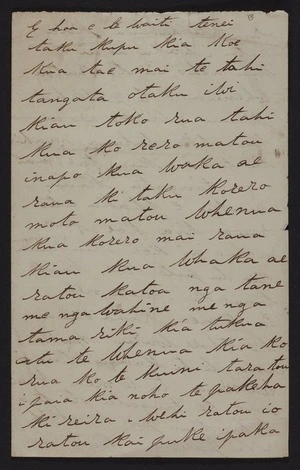 E hoa e te waiti tenei
taku kupu kia koe
kua tae mai te tahi
tangata otaku iwi
kiau toko rua tahi
kua ko rero matou
inapo kua waka ae
raua ki taku korero
moto matou Whenua
kua korero mai raua
kiau kua Whaka ae
ratou katoa nga tane
me nga wahine me nga
tama riki kia tukua
atu te Whenua kia ko
rua ko te kuini taratou
ipaia kia noho te pakeha
ki reira. wehi ratou io
ratou kai puke ipaka